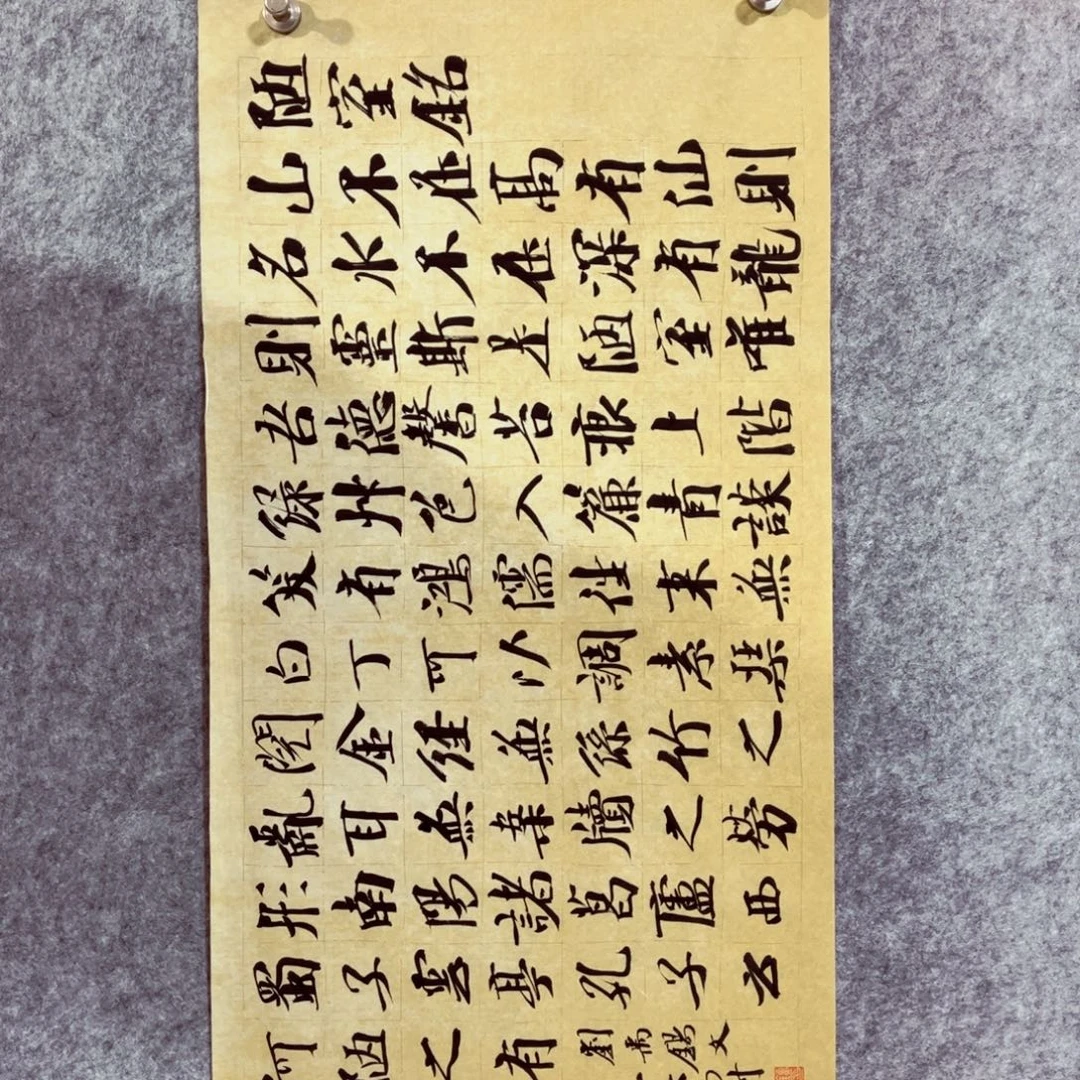 陋室銘
山不在高有仙則
名水不在深有龍
則靈斯是陋室唯
吾德馨苔痕上階
綠艸色入簾青談
笑有鴻儒往来無
白丁可以調素琴
閱金經無絲竹之
亂耳無案牘之勞
形南陽諸葛廬西
蜀子雲亭孔子云
何陋之有
劉禹錫文